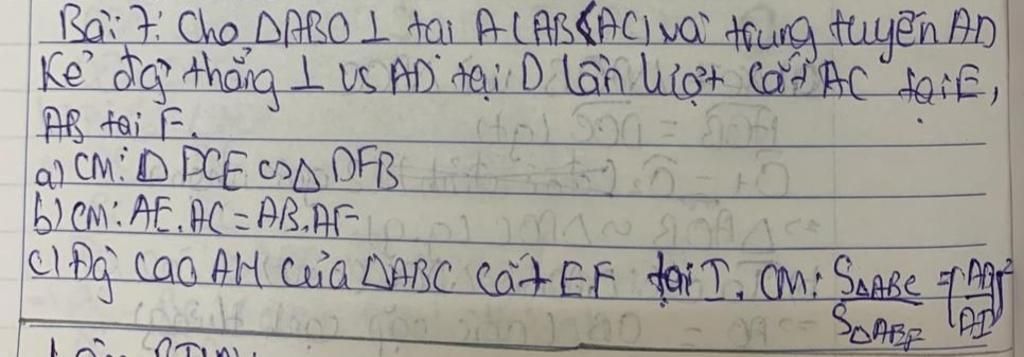 Bài 7: Cho ΔABC ⊥ tại A (AB<AC) và trung tuyến AD
Kẻ đg thẳng ⊥ vs AD tại D lần lượt cắt AC tại E,
AB tại F.
a) CM: Δ DCE ∽ Δ DFB
b) CM: AE.AC = AB.AF
c) Đg cao AH của ΔABC cắt EF tại I. CM: SΔABC/SΔAEF = (AD/AI)²